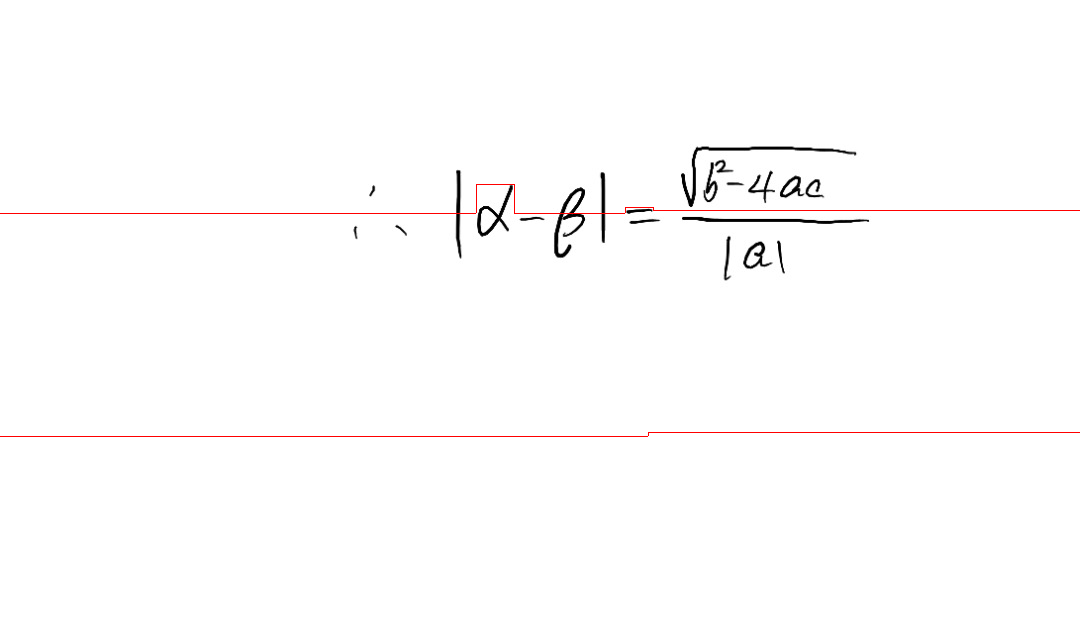 ∴ |α-β| = √(b²-4ac) / |a|